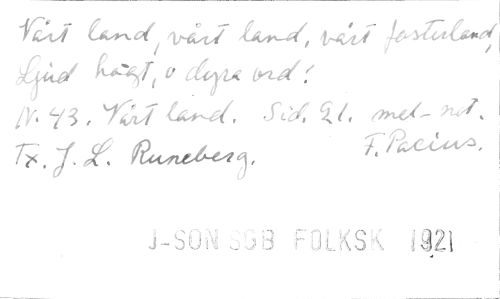 Vårt land, vårt land, vårt fosterland,
Ljud högt, o dyra ord!
N. 43. Vårt land. Sid. 21. mel-not.
Tx. J. L. Runeberg. F. Pacius.
J-SON SGB FOLKSK 1921